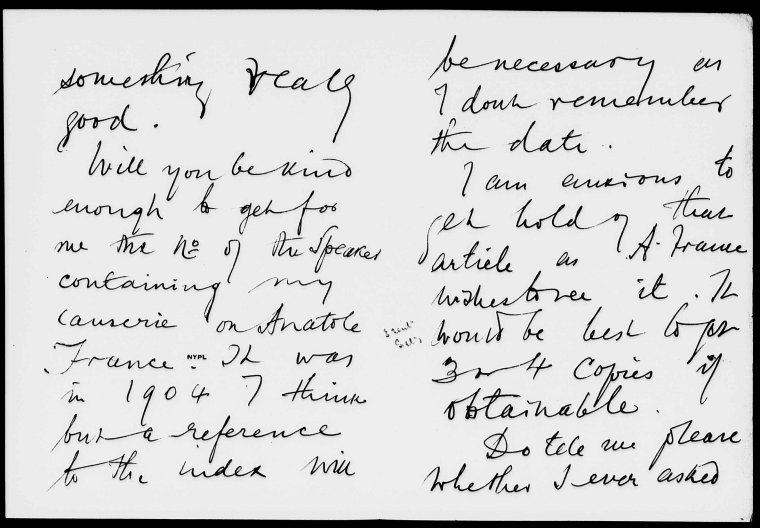 something really
good.
Will you be kind
enough to get for
me the No of the Speaker
containing my
causerie on Anatole
France. It was
NYPL
in 1904 I think
but a reference
to the index will
be necessary as
I dont remember
the date.
I am anxious to
get hold of that
article as A. France
wishes to see it. It
would be best to get
3 or 4 Copies if
obtainable.
Do tell me please
whether I ever asked